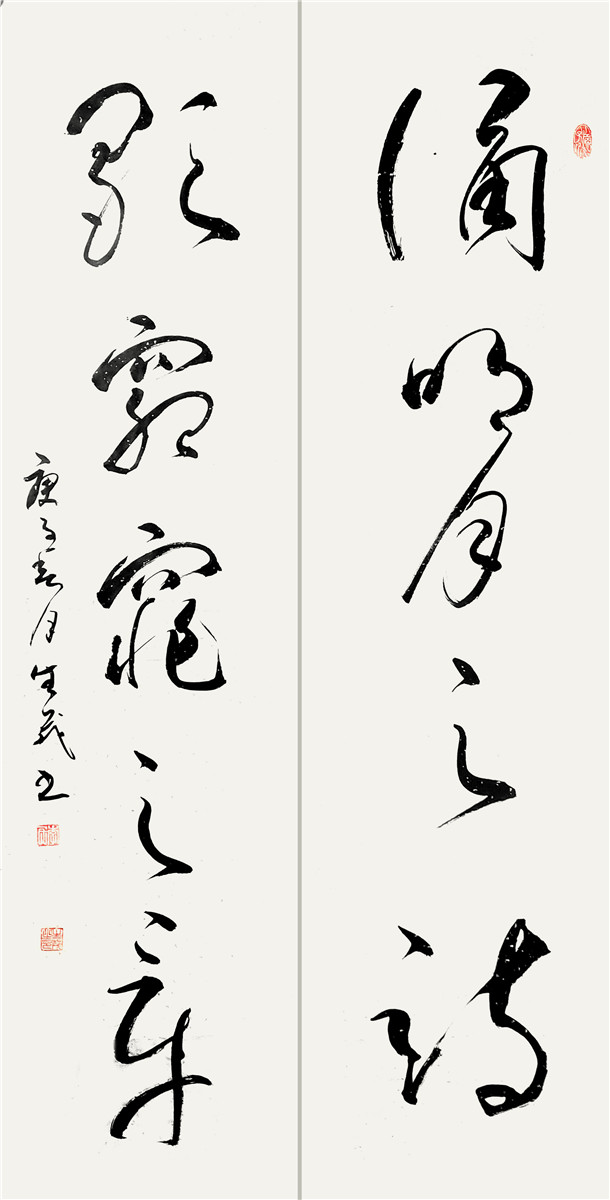 誦明月之詩
歌窈窕之章
庚子春月生茂书